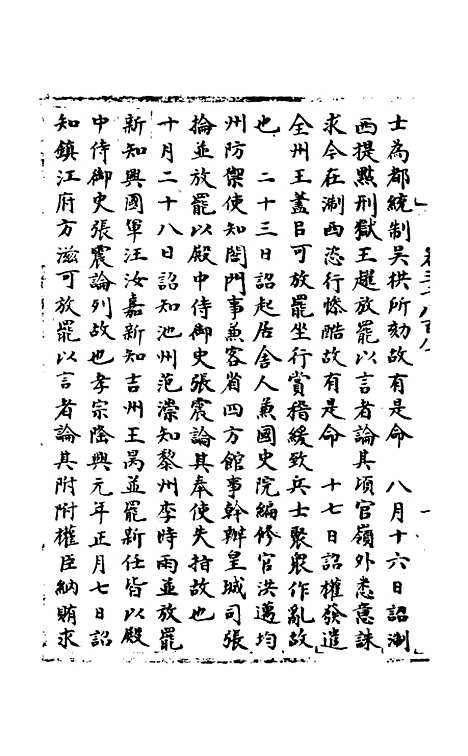 士為都統制吳拱所劾故有是命　八月十六日詔淛
西提點刑獄王趯放罷以言者論其頃官嶺外悉意誅
求今在淛西恣行慘酷故有是命　十七日詔權發遣
全州王蓋臣可放罷坐行賞稽緩致兵士聚衆作亂故
也　二十三日詔起居舍人兼國史院編修官洪邁均
州防禦使知閤門事兼客省四方館事幹辦皇城司張
掄並放罷以殿中侍御史張震論其奉使失指故也
十月二十八日詔知池州范漴知黎州李時雨並放罷
新知興國軍汪汝嘉新知吉州王昺並罷新任皆以殿
中侍御史張震論列故也孝宗隆興元年正月七日詔
知鎮江府方滋可放罷以言者論其附附權臣納賄求